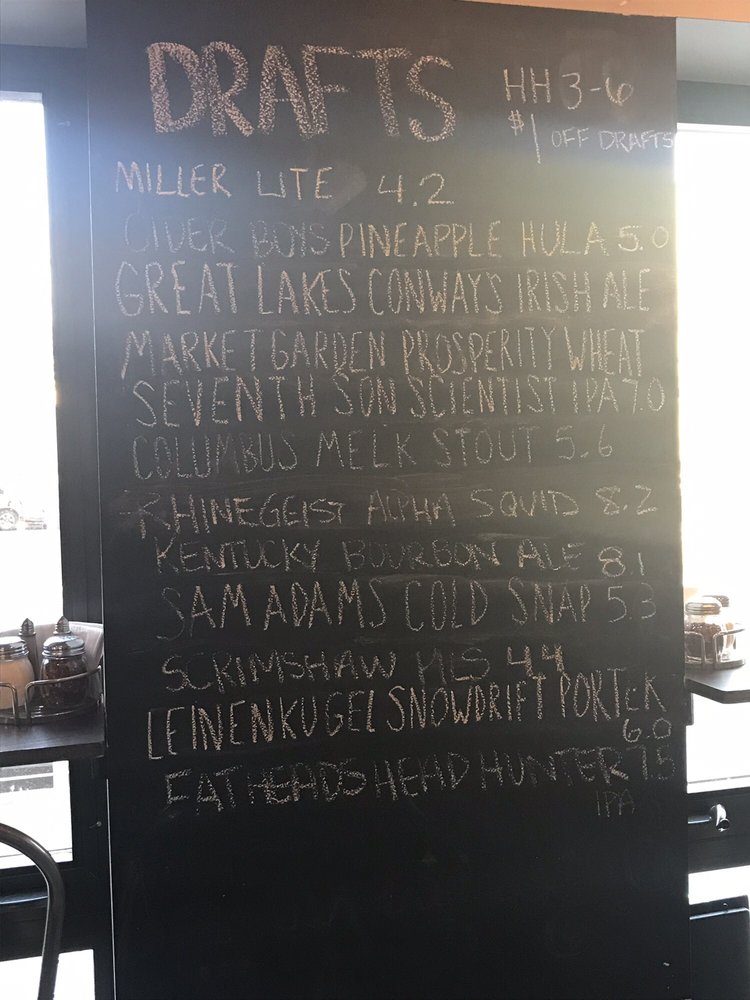 DRAFTS
HH 3-6
$1 OFF DRAFTS
MILLER LITE 4.2
CIVER BOIS PINEAPPLE HULA 5.0
GREAT LAKES CONWAY'S IRISH ALE
MARKET GARDEN PROSPERITY WHEAT
SEVENTH SON SCIENTIST IPA 7.0
COLUMBUS MELK STOUT 5.6
RHINEGEIST ALPHA SQUID 8.2
KENTUCKY BOURBON ALE 8.1
SAM ADAMS COLD SNAP 5.3
SCRIMSHAW PILS 4.4
LEINENKUGEL SNOWDRIFT PORTER
6.0
FATHEADS HEAD HUNTER 7.5
IPA